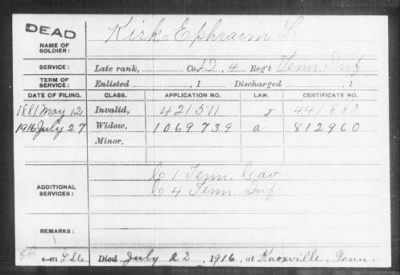 DEAD
NAME OF SOLDIER: Kirk, Ephraim L
SERVICE: Late rank, Co. D, 4 Reg't Tenn Inf
TERM OF SERVICE: Enlisted , 1 Discharged , 1
DATE OF FILING. CLASS. APPLICATION NO. LAW. CERTIFICATE NO.
1881 May 12 Invalid, 421511 441880
1916 July 27 Widow, 1069739 a 812960
Minor,
ADDITIONAL SERVICES: C 1 Tenn Cav
C 4 Tenn Inf
REMARKS:
Died July 22, 1916, at Knoxville, Tenn.